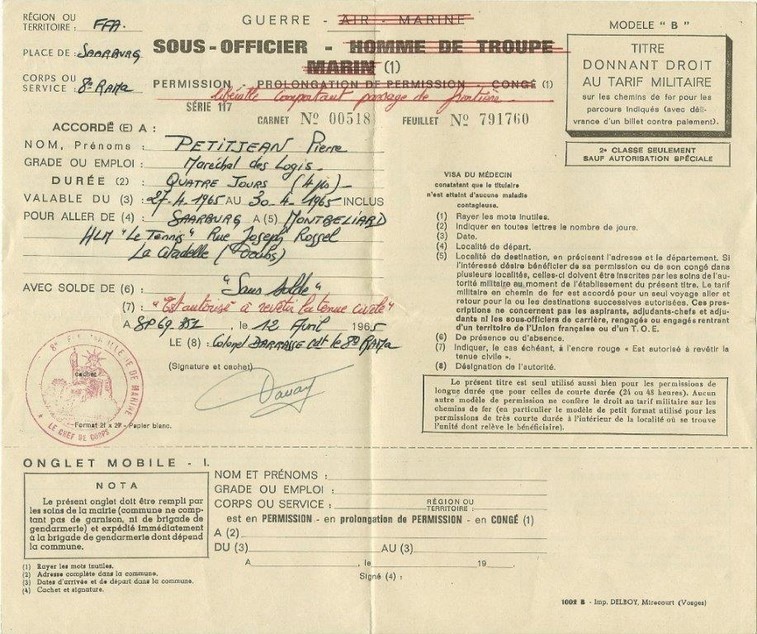 RÉGION OU
TERRITOIRE : FFA
GUERRE - AIR - MARINE
MODELE " B "
PLACE DE - SAARBURG
SOUS-OFFICIER - HOMME DE TROUPE
MARIN (1)
CORPS OU
SERVICE : 8e RAMa
PERMISSION - PROLONGATION DE PERMISSION - CONGÉ (1)
libérable comportant passage de frontière.
SÉRIE 117 CARNET Nº 00518 FEUILLET Nº 791760
TITRE
DONNANT DROIT
AU TARIF MILITAIRE
sur les chemins de fer pour les
parcours indiqués (avec déli-
vrance d'un billet contre paiement).
2e CLASSE SEULEMENT
SAUF AUTORISATION SPÉCIALE
ACCORDÉ (E) A :
NOM, Prénoms : PETITJEAN Pierre
GRADE OU EMPLOI : Maréchal des Logis
DURÉE (2) : QUATRE JOURS (4 jrs)
VALABLE DU (3) : 27-4-1965 AU 30-4-1965 INCLUS
POUR ALLER DE (4) : SAARBURG A (5) MONTBELIARD
HLM "Le Tennis" Rue Joseph Rossel
La Citadelle (Doubs)
AVEC SOLDE DE (6) : "Sans solde"
(7) : "Est autorisé à revêtir la tenue civile"
A SP 69.851, le 12 Avril 1965
LE (8) : Colonel cdt le 8e RAMa
(Signature et cachet)
cachet
DE MARINE
* LE CHEF DE CORPS *
Format 21 x 29 - Papier blanc.
VISA DU MÉDECIN
constatant que le titulaire
n'est atteint d'aucune maladie
contagieuse.
(1) Rayer les mots inutiles.
(2) Indiquer en toutes lettres le nombre de jours.
(3) Date.
(4) Localité de départ.
(5) Localité de destination, en précisant l'adresse et le département. Si
l'intéressé désire bénéficier de sa permission ou de son congé dans
plusieurs localités, celles-ci doivent être inscrites par les soins de l'au-
torité militaire au moment de l'établissement du présent titre. Le tarif
militaire en chemin de fer est accordé pour un seul voyage aller et
retour pour la ou les destinations successives autorisées. Ces pres-
criptions ne concernent pas les aspirants, adjudants-chefs et adju-
dants ni les sous-officiers de carrière, rengagés ou engagés rentrant
d'un territoire de l'Union française ou d'un T. O. E.
(6) De présence ou d'absence.
(7) Indiquer, le cas échéant, à l'encre rouge « Est autorisé à revêtir la
tenue civile ».
(8) Désignation de l'autorité.
Le présent titre est seul utilisé aussi bien pour les permissions de
longue durée que pour celles de courte durée (24 ou 48 heures). Aucun
autre modèle de permission ne confère le droit au tarif militaire sur les
chemins de fer (en particulier le modèle de petit format utilisé pour les
permissions de très courte durée à l'intérieur de la localité où se trouve
l'unité dont relève le bénéficiaire).
ONGLET MOBILE - I.
NOTA
Le présent onglet doit être rempli par
les soins de la mairie (commune ne comp-
tant pas de garnison, ni de brigade de
gendarmerie) et expédié immédiatement
à la brigade de gendarmerie dont dépend
la commune.
(1) Rayer les mots inutiles.
(2) Adresse complète dans la commune.
(3) Dates d'arrivée et de départ dans la commune.
(4) Cachet et signature.
NOM ET PRÉNOMS :
GRADE OU EMPLOI :
CORPS OU SERVICE : RÉGION OU
TERRITOIRE :
est en PERMISSION - en prolongation de PERMISSION - en CONGÉ (1)
A (2)
DU (3) AU (3)
A , le 19
Signé (4) :
1002 B - Imp. DELBOY, Mirecourt (Vosges)